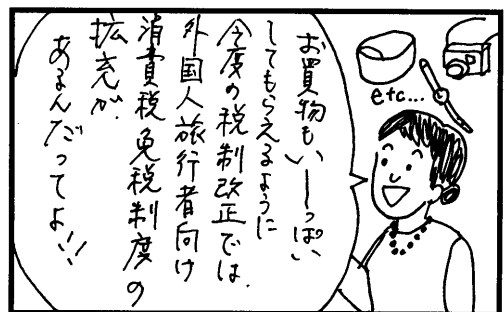 お買物もいーっぱい
してもらえるように
今度の税制改正では、
外国人旅行者向け
消費税免税制度の
拡充が、
あるんだってよ!!
etc...